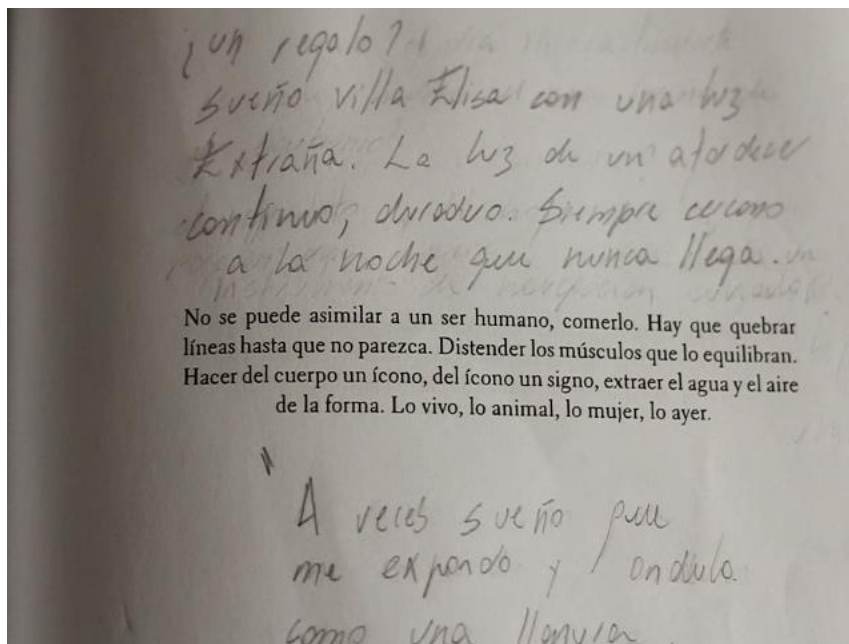 ¿un regalo?
sueño villa Elisa con una luz
Extraña. La luz de un atardecer
continuo, duradero. Siempre cercano
a la noche que nunca llega.
No se puede asimilar a un ser humano, comerlo. Hay que quebrar
líneas hasta que no parezca. Distender los músculos que lo equilibran.
Hacer del cuerpo un ícono, del ícono un signo, extraer el agua y el aire
de la forma. Lo vivo, lo animal, lo mujer, lo ayer.
A veces sueño que
me expando y ondula
como una llanura